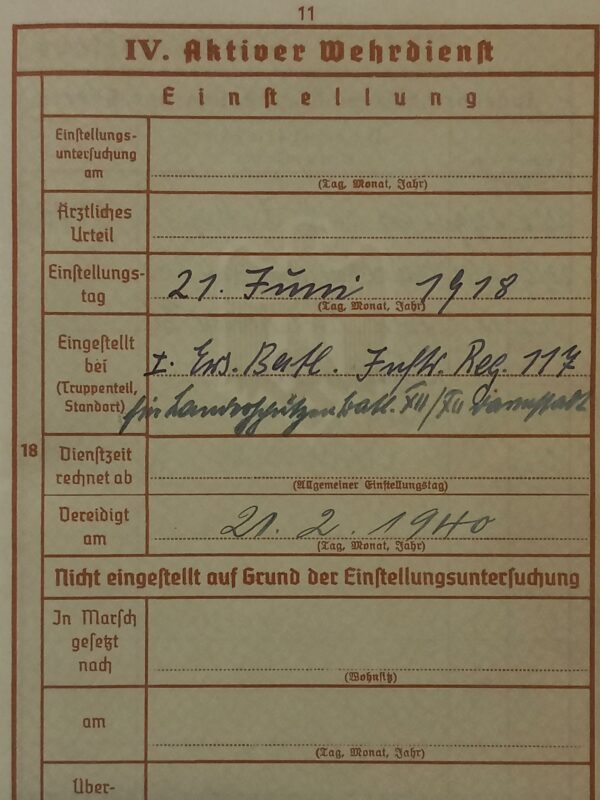 11
IV. Aktiver Wehrdienst
Einstellung
Einstellungs-
untersuchung
am
(Tag, Monat, Jahr)
Ärztliches
Urteil
Einstellungs-
tag
21. Juni 1918
(Tag, Monat, Jahr)
Eingestellt
bei
(Truppenteil,
Standort)
I. Ers. Batl. Inftr. Reg. 117
Landesschützen Batl. XII/XII Darmstadt
18
Dienstzeit
rechnet ab
(Allgemeiner Einstellungstag)
Vereidigt
am
21. 2. 1940
(Tag, Monat, Jahr)
Nicht eingestellt auf Grund der Einstellungsuntersuchung
In Marsch
gesetzt
nach
(Wohnsitz)
am
(Tag, Monat, Jahr)
Über-